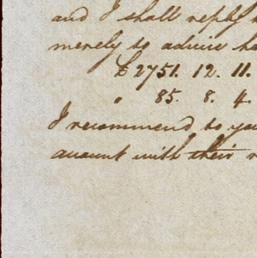 and I shall reply
merely to advise
£2751. 12. 11.
" 85. 8. 4.
I recommend to you
account with their